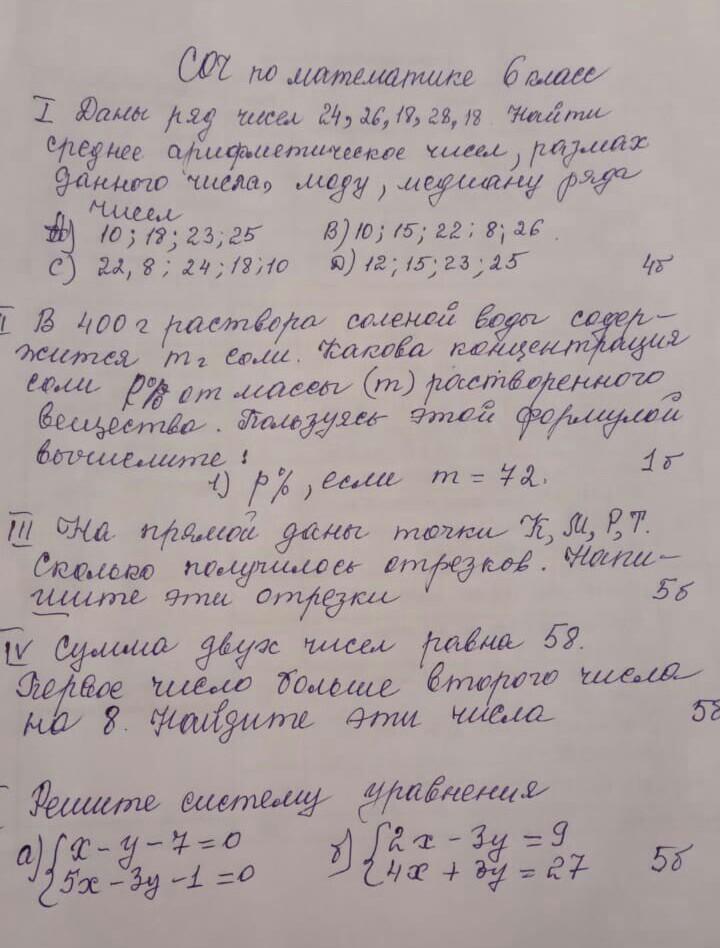 СОЧ по математике 6 класс
I Даны ряд чисел 24, 26, 18, 28, 18 Найти
среднее арифметическое чисел, размах
данного числа, моду, медиану ряда
чисел
10; 18; 23; 25 В) 10; 15; 22; 8; 26.
С) 22,8; 24; 18; 10 Д) 12; 15; 23; 25 4б
II В 400 г раствора соленой воды содер-
жится m г соли. Какова концентрация
соли р% от массы (m) растворенного
вещества. Пользуясь этой формулой
вычислите: 1б
1) р%, если m = 72.
III На прямой даны точки К, М, Р, Т.
Сколько получилось отрезков. Напи-
шите эти отрезки 5б
IV Сумма двух чисел равна 58.
Первое число больше второго числа
на 8. Найдите эти числа 5б
Решите систему уравнения
а) { x - y - 7 = 0 б) { 2x - 3y = 9
5x - 3y - 1 = 0 4x + 3y = 27 5б